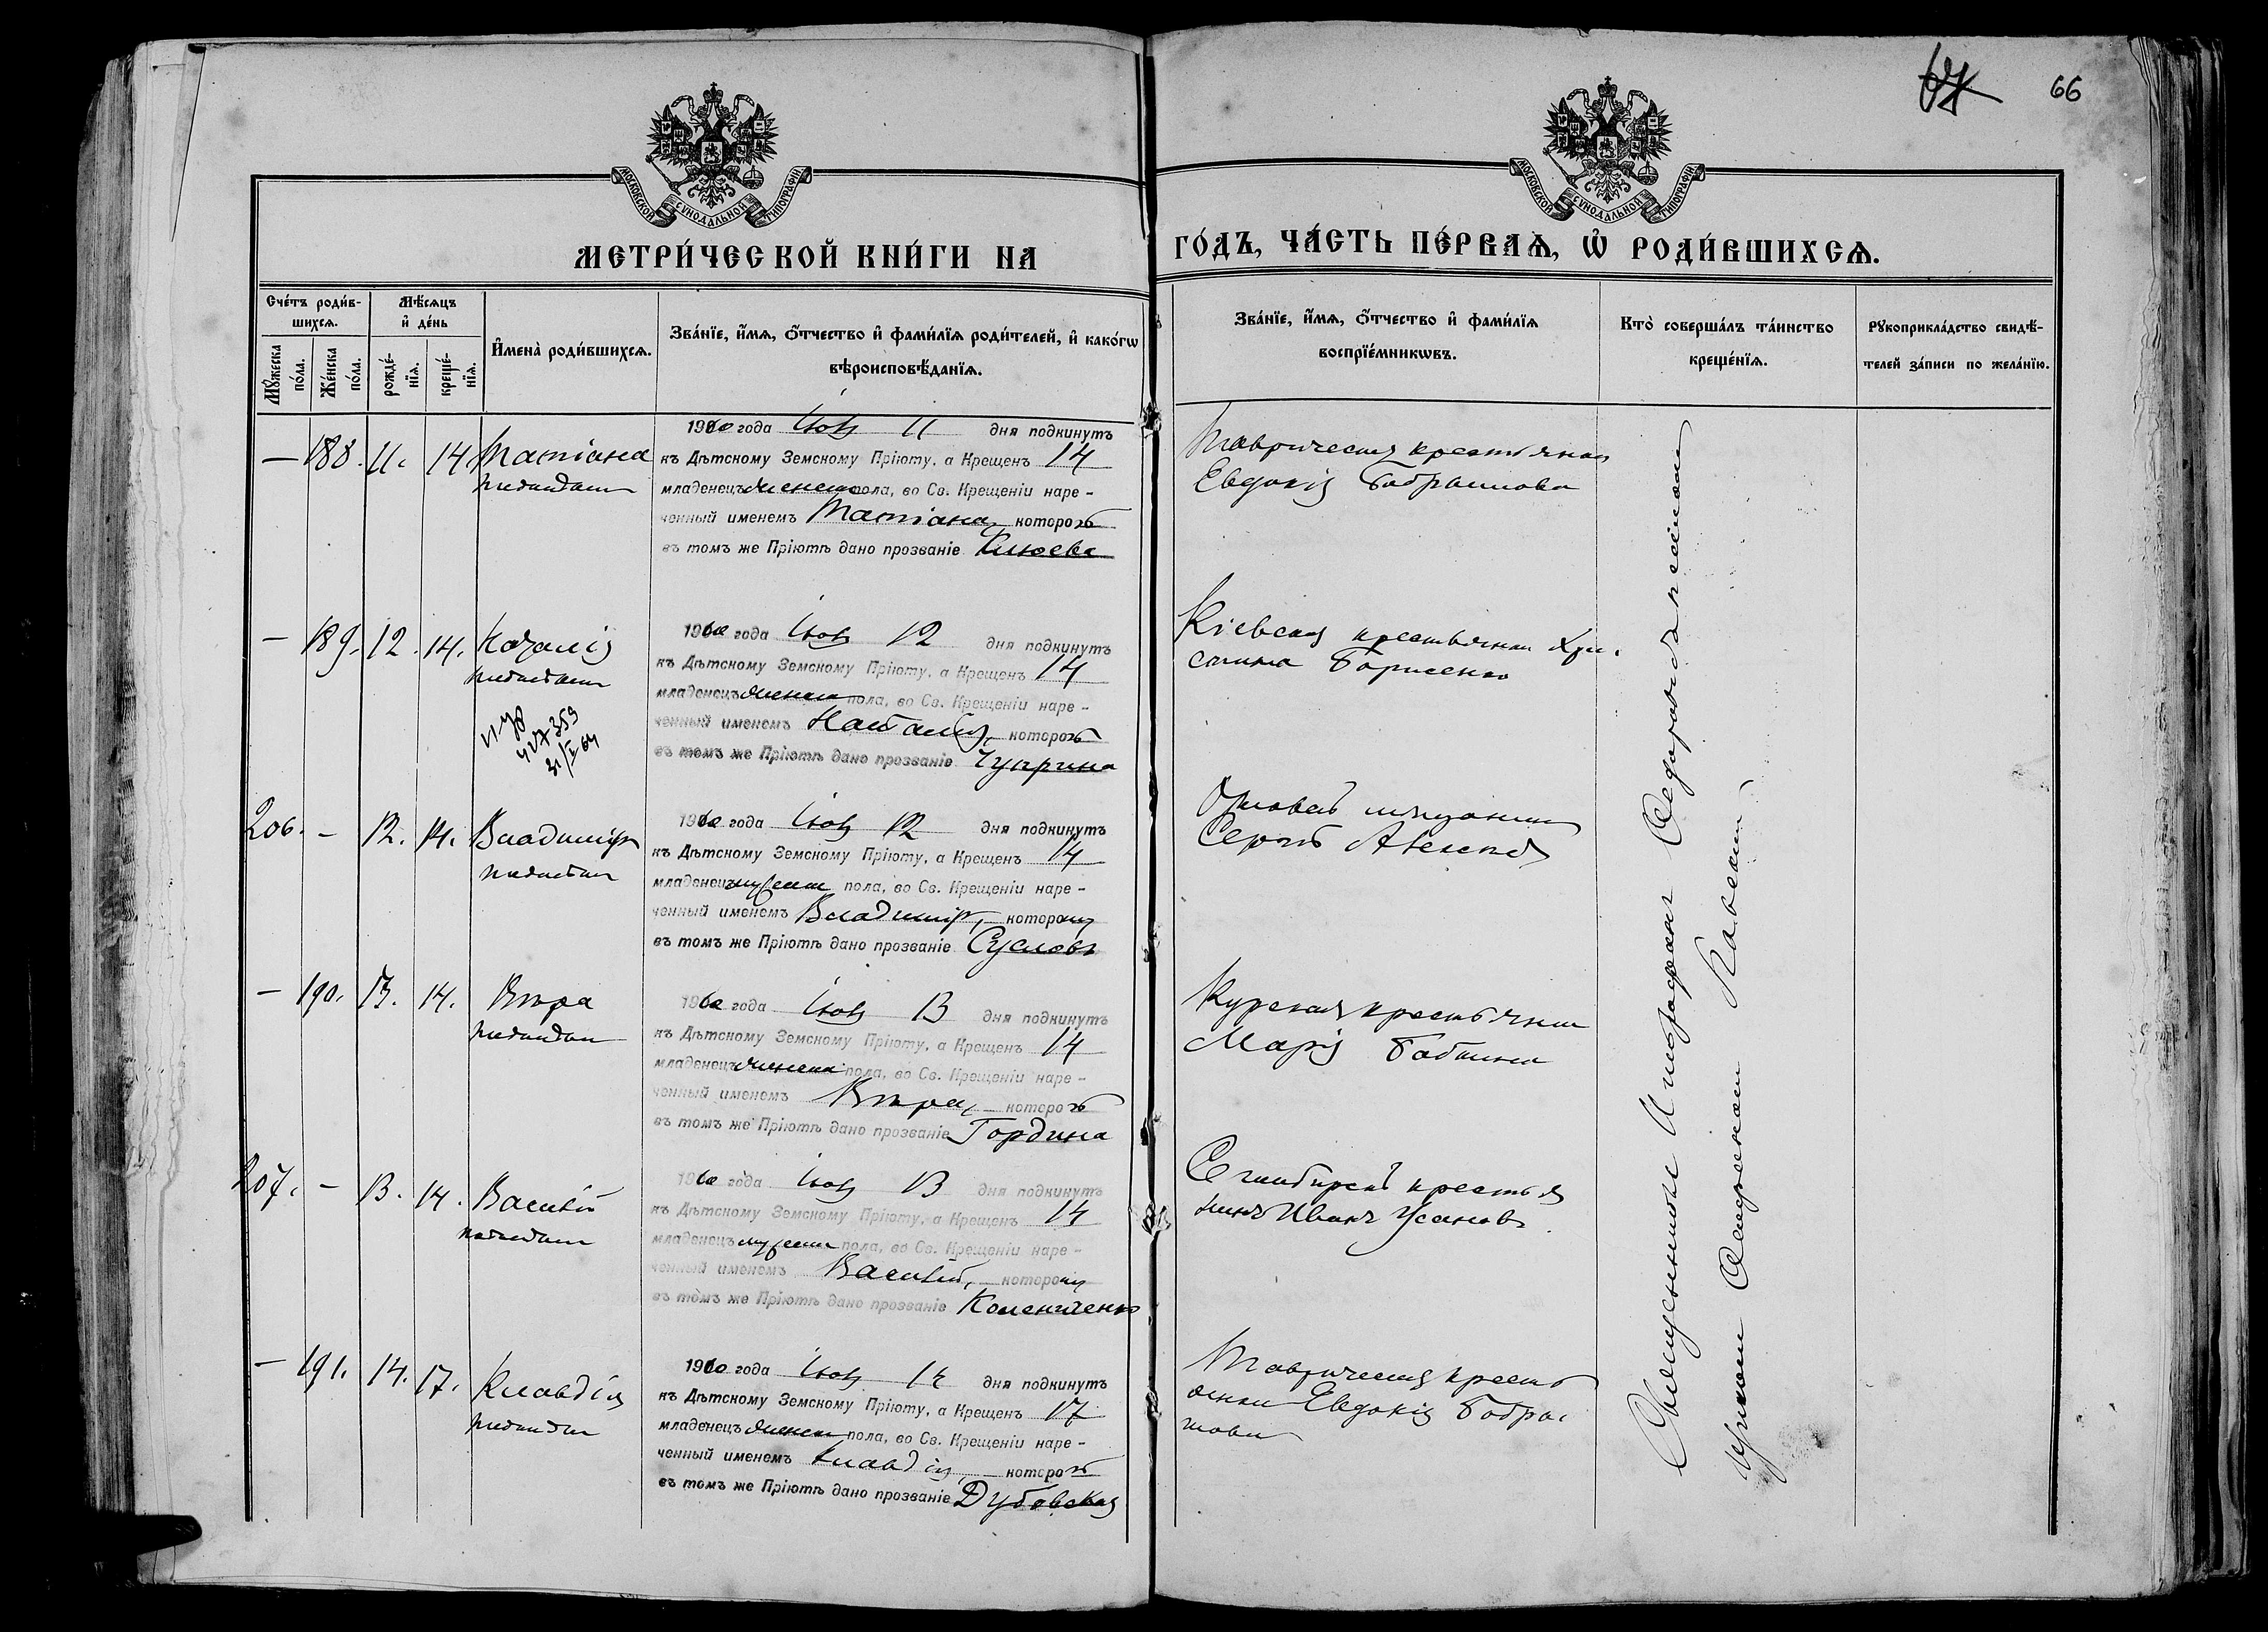 67 66
МОСКОВСКОЙ СѴНОДАЛЬНОЙ ТИПОГРАФІИ
МОСКОВСКОЙ СѴНОДАЛЬНОЙ ТИПОГРАФІИ
МЕТРИ́ЧЕСКОЙ КНИ́ГИ НА
ГО́ДЪ, ЧА́СТЬ ПЕ́РВАѦ, Ѡ҆ РОДИ́ВШИХСѦ.
Сче́тъ роди́в-
шихсѧ.
Мꙋ́жеска
по́ла.
Же́нска
по́ла.
Мѣ́сѧцъ
и҆ де́нь
рожде́-
нїѧ.
креще́-
нїѧ.
И҆мена̀ роди́вшихсѧ.
Зва́нїе, и҆́мѧ, ѻ҆́тчество и҆ фами́лїѧ роди́телей, и҆ како́гѡ
вѣроисповѣ́данїѧ.
Зва́нїе, и҆́мѧ, ѻ҆́тчество и҆ фами́лїѧ
воспрїе́мникѡвъ.
Кто̀ соверша́лъ та́инство
креще́нїѧ.
Рꙋкоприкла́дство свидѣ́-
телей за́писи по жела́нїю.
— 188. 11. 14. Татіана
подкидыш
1910 года 11 дня подкинутъ
къ Дѣтскому Земскому Пріюту, а Крещенъ 14
младенецъ женск пола, во Св. Крещеніи наре-
ченный именемъ Татіана, которой
въ томъ же Пріютѣ дано прозваніе Клюева
Таврическая крестьянка
Евдокія
— 189. 12. 14. Наталія
подкидыш
427359
1910 года 12 дня подкинутъ
къ Дѣтскому Земскому Пріюту, а Крещенъ 14
младенецъ женск пола, во Св. Крещеніи наре-
ченный именемъ Наталія, которой
въ томъ же Пріютѣ дано прозваніе Чуприна
Кіевская крестьянка Хри-
стина Борисенко
206. — 12. 14. Владиміръ
подкидыш
1910 года 12 дня подкинутъ
къ Дѣтскому Земскому Пріюту, а Крещенъ 14
младенецъ мужеск пола, во Св. Крещеніи наре-
ченный именемъ Владиміръ, которому
въ томъ же Пріютѣ дано прозваніе Сусловъ
мѣщанин
Сергѣй
— 190. 13. 14. Вѣра
подкидыш
1910 года 13 дня подкинутъ
къ Дѣтскому Земскому Пріюту, а Крещенъ 14
младенецъ женска пола, во Св. Крещеніи наре-
ченный именемъ Вѣра, которой
въ томъ же Пріютѣ дано прозваніе Гордина
Курская крестьянка
Марія
207. — 13. 14. Василій
подкидыш
1910 года 13 дня подкинутъ
къ Дѣтскому Земскому Пріюту, а Крещенъ 14
младенецъ мужеск пола, во Св. Крещеніи наре-
ченный именемъ Василій, которому
въ томъ же Пріютѣ дано прозваніе Коленченко
Симбирскій крестья
нинъ Иванъ Усановъ
— 191. 14. 17. Клавдія
подкидыш
1910 года 14 дня подкинутъ
къ Дѣтскому Земскому Пріюту, а Крещенъ 17
младенецъ женск пола, во Св. Крещеніи наре-
ченный именемъ Клавдія, которой
въ томъ же Пріютѣ дано прозваніе Дубовская
Таврическая кресть
янка Евдокія
Священникъ